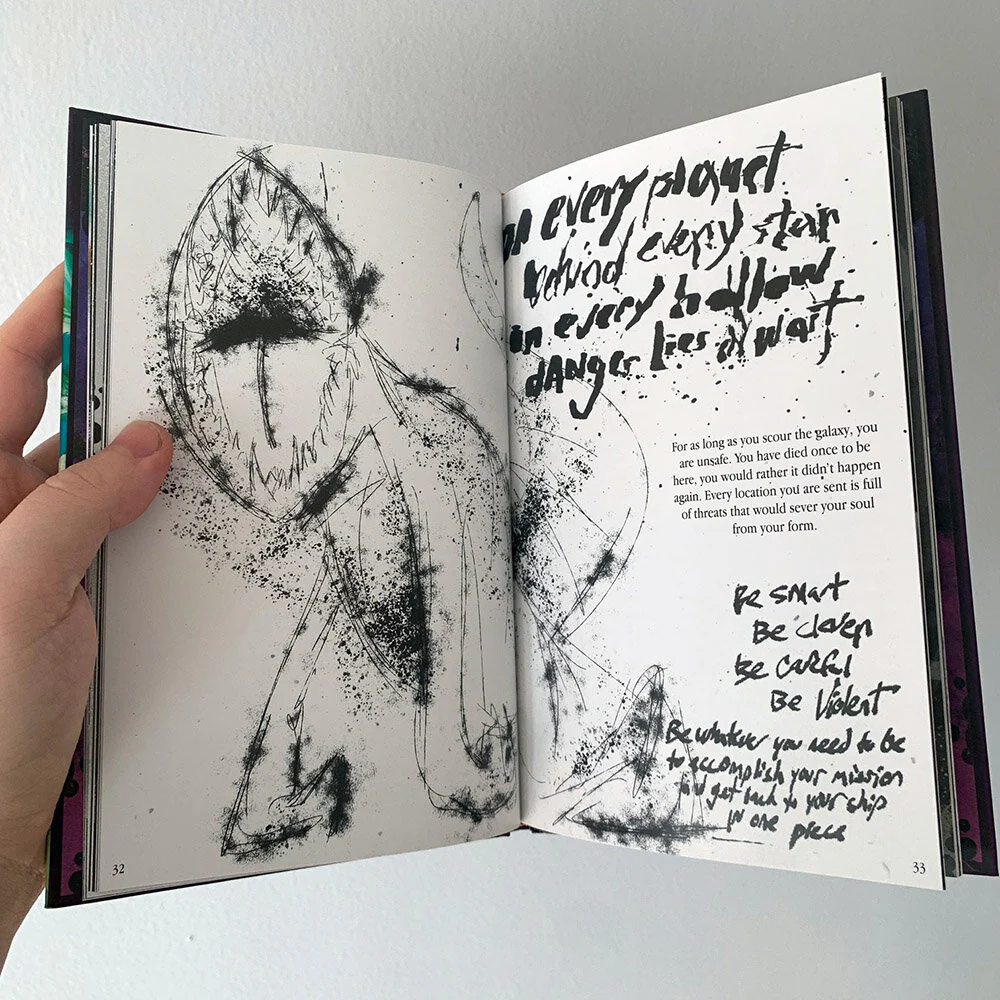 on every planet
behind every star
in every hollow
dANger lies in wait
For as long as you scour the galaxy, you
are unsafe. You have died once to be
here, you would rather it didn't happen
again. Every location you are sent is full
of threats that would sever your soul
from your form.
Be smart
Be clever
Be careful
Be Violent
Be whatever you need to be
to accomplish your mission
and get back to your ship
in one piece
32
33